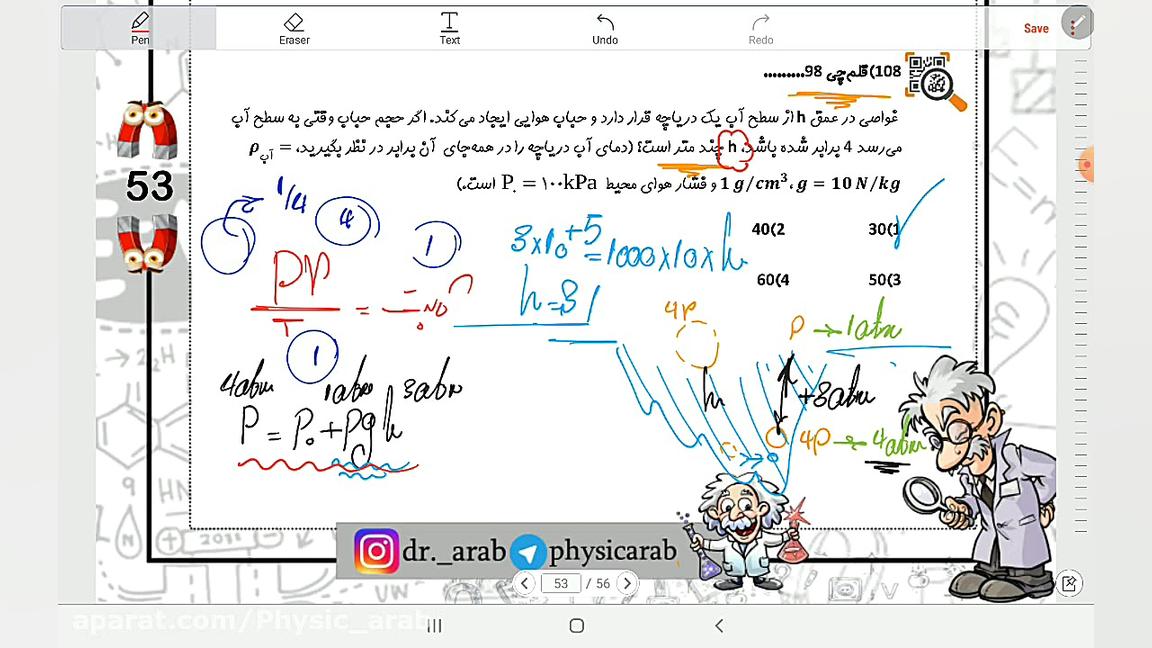 Pen
Eraser
Text
Undo
Redo
Save
108)قلم‌چی 98.........
غواصی در عمق h از سطح آب یک دریاچه قرار دارد و حباب هوایی ایجاد می‌کند. اگر حجم حباب وقتی به سطح آب
می‌رسد 4 برابر شده باشد، h چند متر است؟ (دمای آب دریاچه را در همه‌جای آن برابر در نظر بگیرید، = ρآب
1 g/cm³، g = 10 N/kg و فشار هوای محیط P. = ۱۰۰kPa است.)
30(1
40(2
50(3
60(4
53
1/4
4
1
PV
T
=
1
3×10+5
=1000×10×h
h=3
4P
P → 1atm
h
+3atm
4P
4atm
4atm
1atm
3atm
P = P. + ρgh
dr._arab
physicarab
53 / 56
aparat.com/Physic_arab